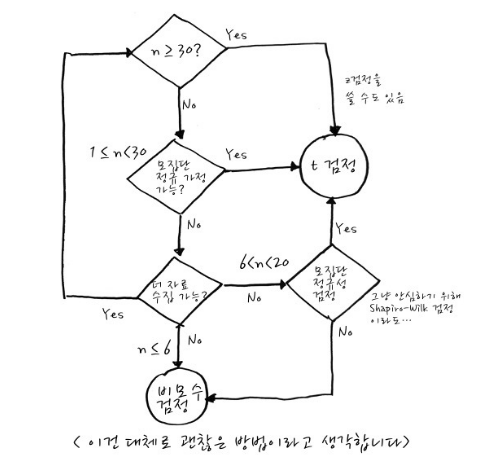 n ≥ 30?
Yes
z검정을
쓸 수도 있음
No
1 ≤ n < 30
모집단
정규 가정
가능?
Yes
t 검정
No
Yes
6<n<20
더 자료
수집 가능?
No
모집단
정규성
검정
Yes
그냥 안심하기 위해
Shapiro-Wilk 검정
이라도...
No
No
n ≤ 6
비모수
검정
< 이건 대체로 괜찮은 방법이라고 생각합니다>